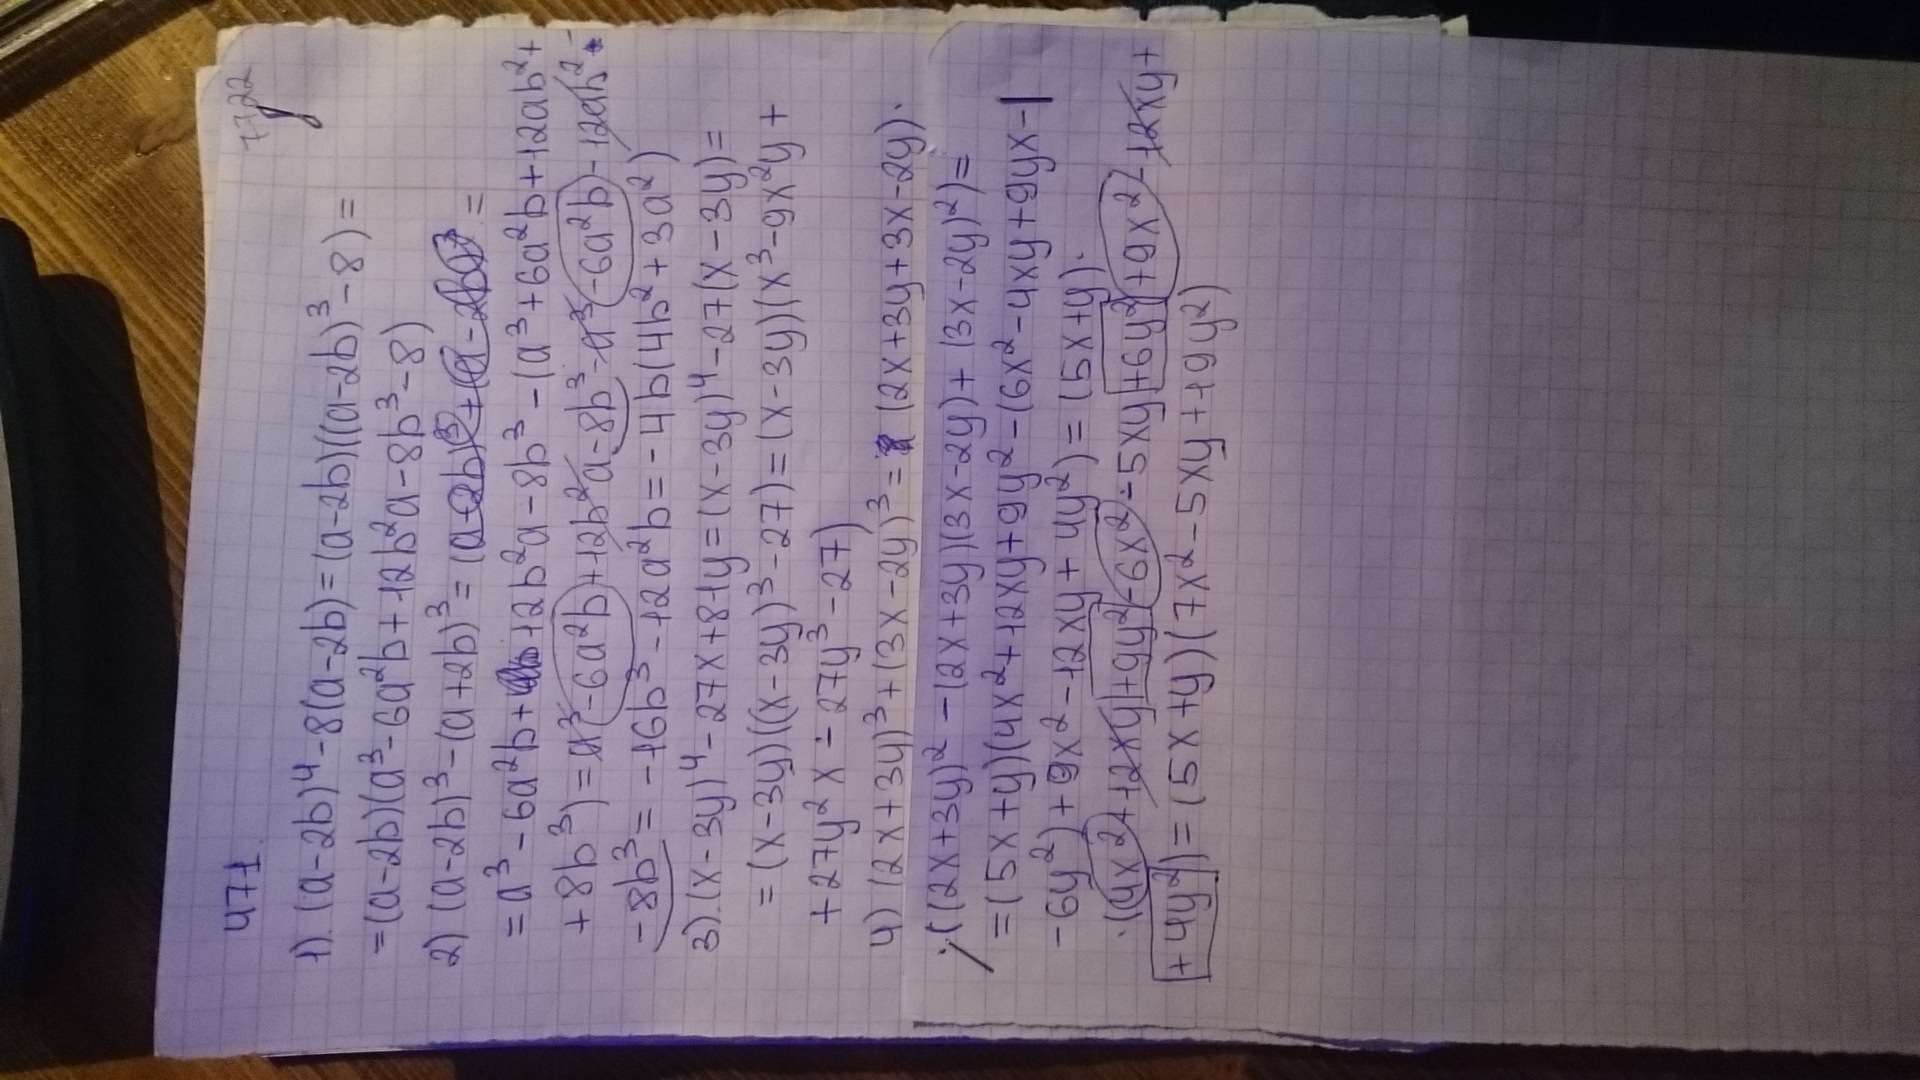 7722
471.
1). (a-2b)⁴-8(a-2b)=(a-2b)((a-2b)³-8)=
=(a-2b)(a³-6a²b+12b²a-8b³-8)
2) (a-2b)³-(a+2b)³= =
=a³-6a²b+12b²a-8b³-(a³+6a²b+12ab²+
+8b³)=a³-6a²b+12b²a-8b³-a³-6a²b-12ab²-
-8b³=-16b³-12a²b=-4b(4b²+3a²)
3).(x-3y)⁴-27x+81y=(x-3y)⁴-27(x-3y)=
=(x-3y)((x-3y)³-27)=(x-3y)(x³-9x²y+
+27y²x-27y³-27)
4) (2x+3y)³+(3x-2y)³= (2x+3y+3x-2y)·
·((2x+3y)²-(2x+3y)(3x-2y)+(3x-2y)²)=
=(5x+y)(4x²+12xy+9y²-(6x²-4xy+9yx-
-6y²)+9x²-12xy+4y²)=(5x+y)·
·(4x²+12xy+9y²-6x²-5xy+6y²+9x²-12xy+
+4y²)=(5x+y)(7x²-5xy+19y²)